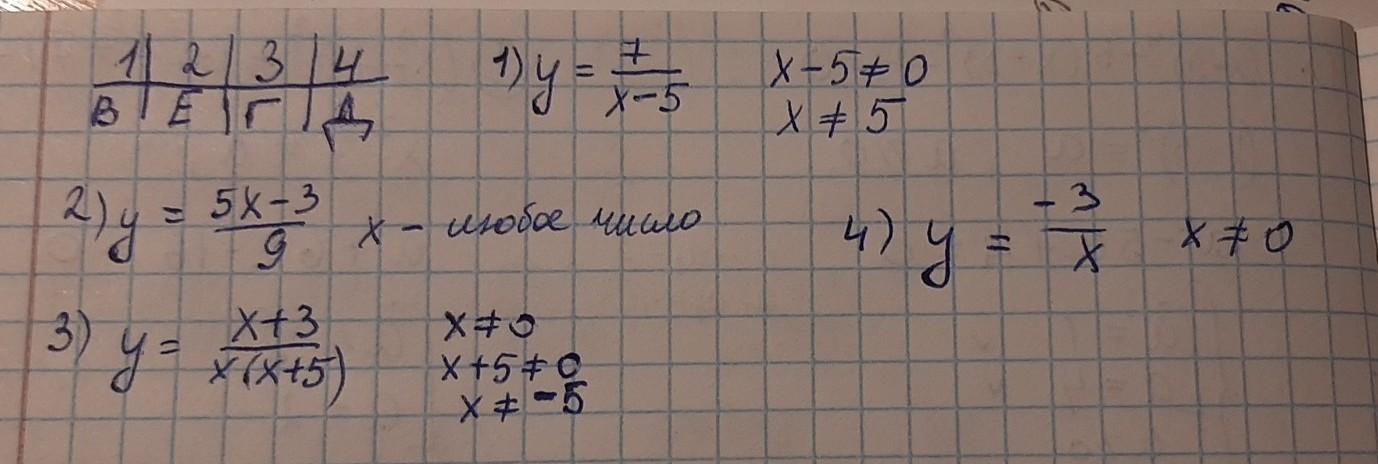 1 | 2 | 3 | 4
В | Е | Г | Д
1) y = 7/(x-5) x-5≠0
x ≠ 5
2) y = (5x-3)/9 x - любое число
4) y = -3/x x ≠ 0
3) y = (x+3)/(x(x+5)) x≠0
x+5≠0
x ≠ -5